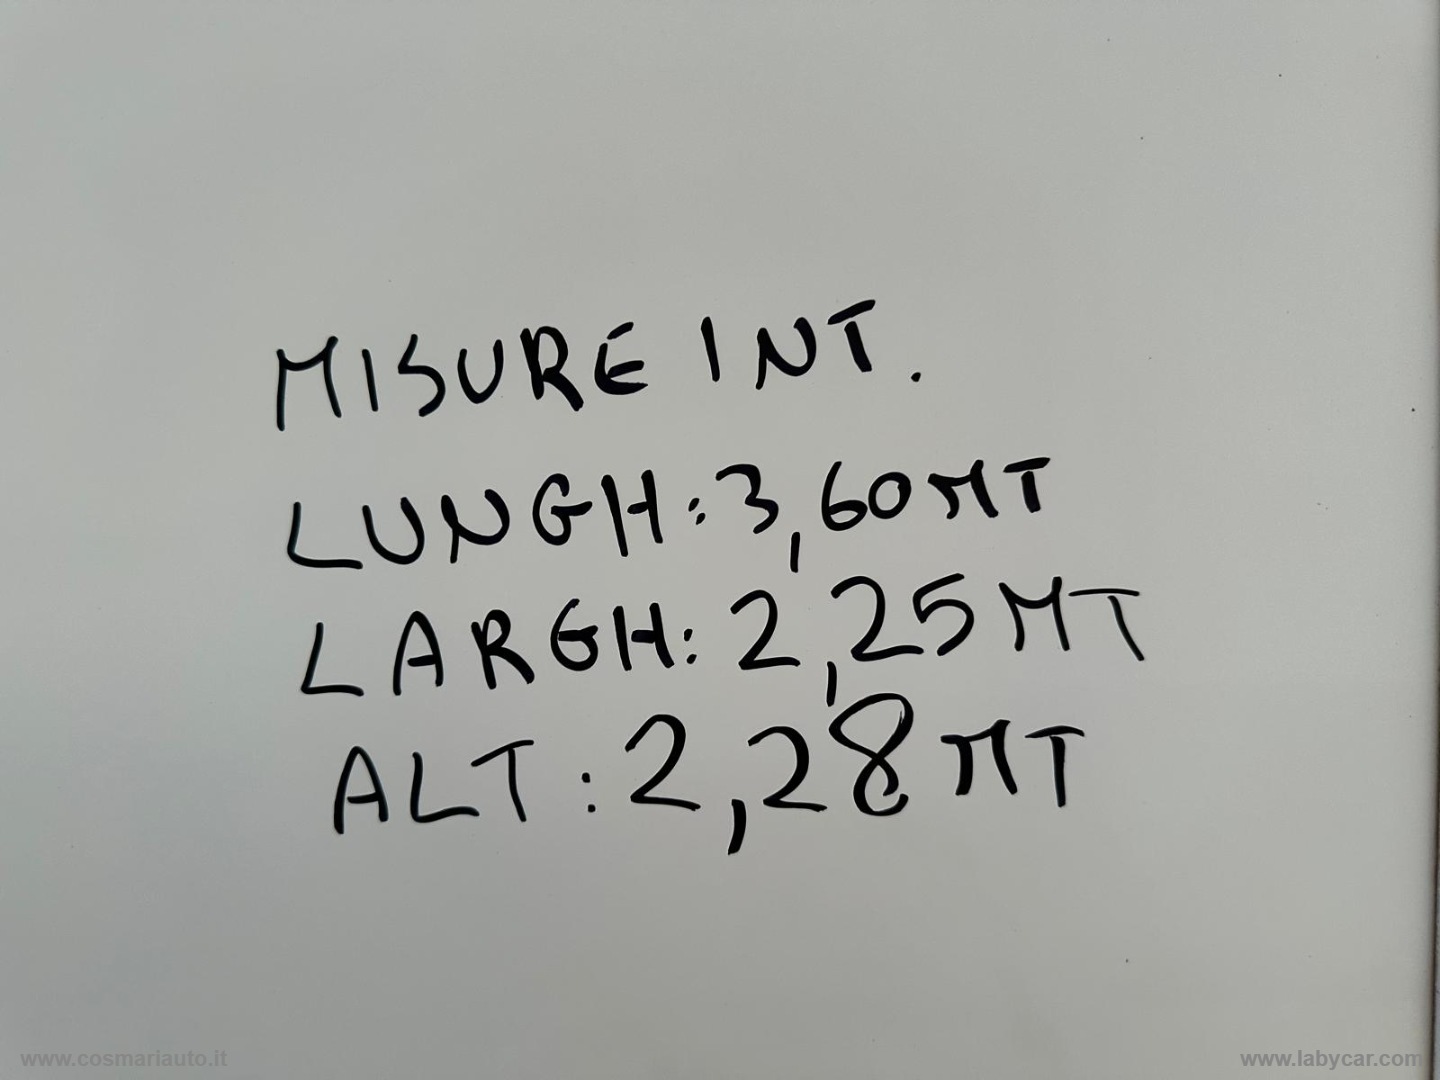 MISURE INT.
LUNGH: 3,60 MT
LARGH: 2,25 MT
ALT: 2,28 MT
www.cosmariauto.it
www.labycar.com